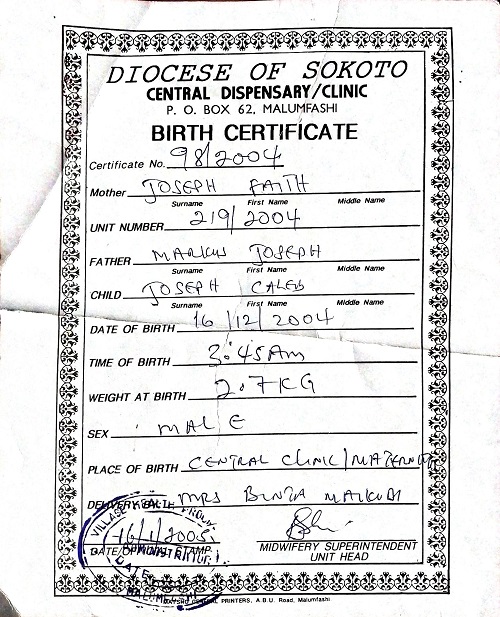 DIOCESE OF SOKOTO
CENTRAL DISPENSARY/CLINIC
P. O. BOX 62, MALUMFASHI
BIRTH CERTIFICATE
Certificate No. 98/2004
Mother JOSEPH FAITH
Surname First Name Middle Name
UNIT NUMBER 219/2004
FATHER MARKUS JOSEPH
Surname First Name Middle Name
CHILD JOSEPH CALEB
Surname First Name Middle Name
DATE OF BIRTH 16/12/2004
TIME OF BIRTH 3:45Am
WEIGHT AT BIRTH 2.7KG
SEX MALE
PLACE OF BIRTH CENTRAL CLINIC/
DELIVERY MRS
16/1/2005
DATE/OFFICIAL STAMP
MIDWIFERY SUPERINTENDENT
UNIT HEAD
PRINTERS, A.B.U. Road, Malumfashi